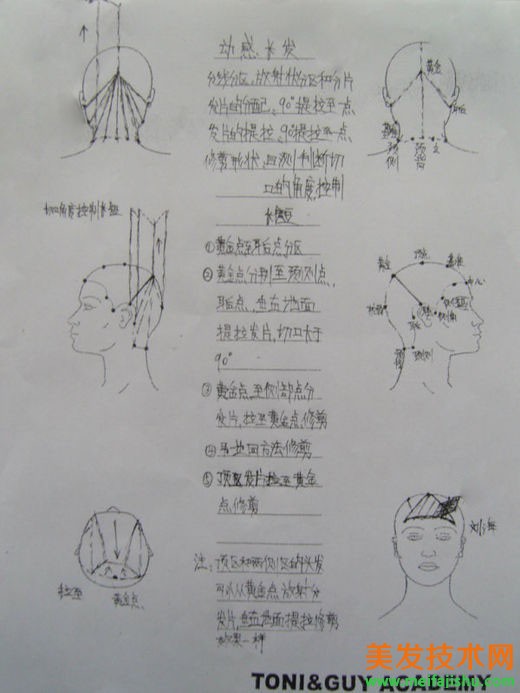 动感长发
发片的分配，90°提拉至一点
发片的提拉，90°提拉至一点
修剪形状，目测判断切
口的角度控制
长短
切口角度控制长短
①黄金点至耳后点分区
②黄金点分别至颈侧点，
耳后点，垂直地面
提拉发片，切口大于
90°
③黄金点至侧部点分
发片，拉至黄金点修剪
④另一面方法修剪
⑤顶区发片拉至黄金
点修剪
注：顶区和两侧区的头发
可以从黄金点放射分
发片，垂直地面提拉修剪
效果一样
黄金
耳后
颈侧
颈背
黄金
顶点
中心
耳后
颈侧
拉至
黄金点
刘海
TONI&GUY ACADEMY
美发技术网
www.meifajishu.com